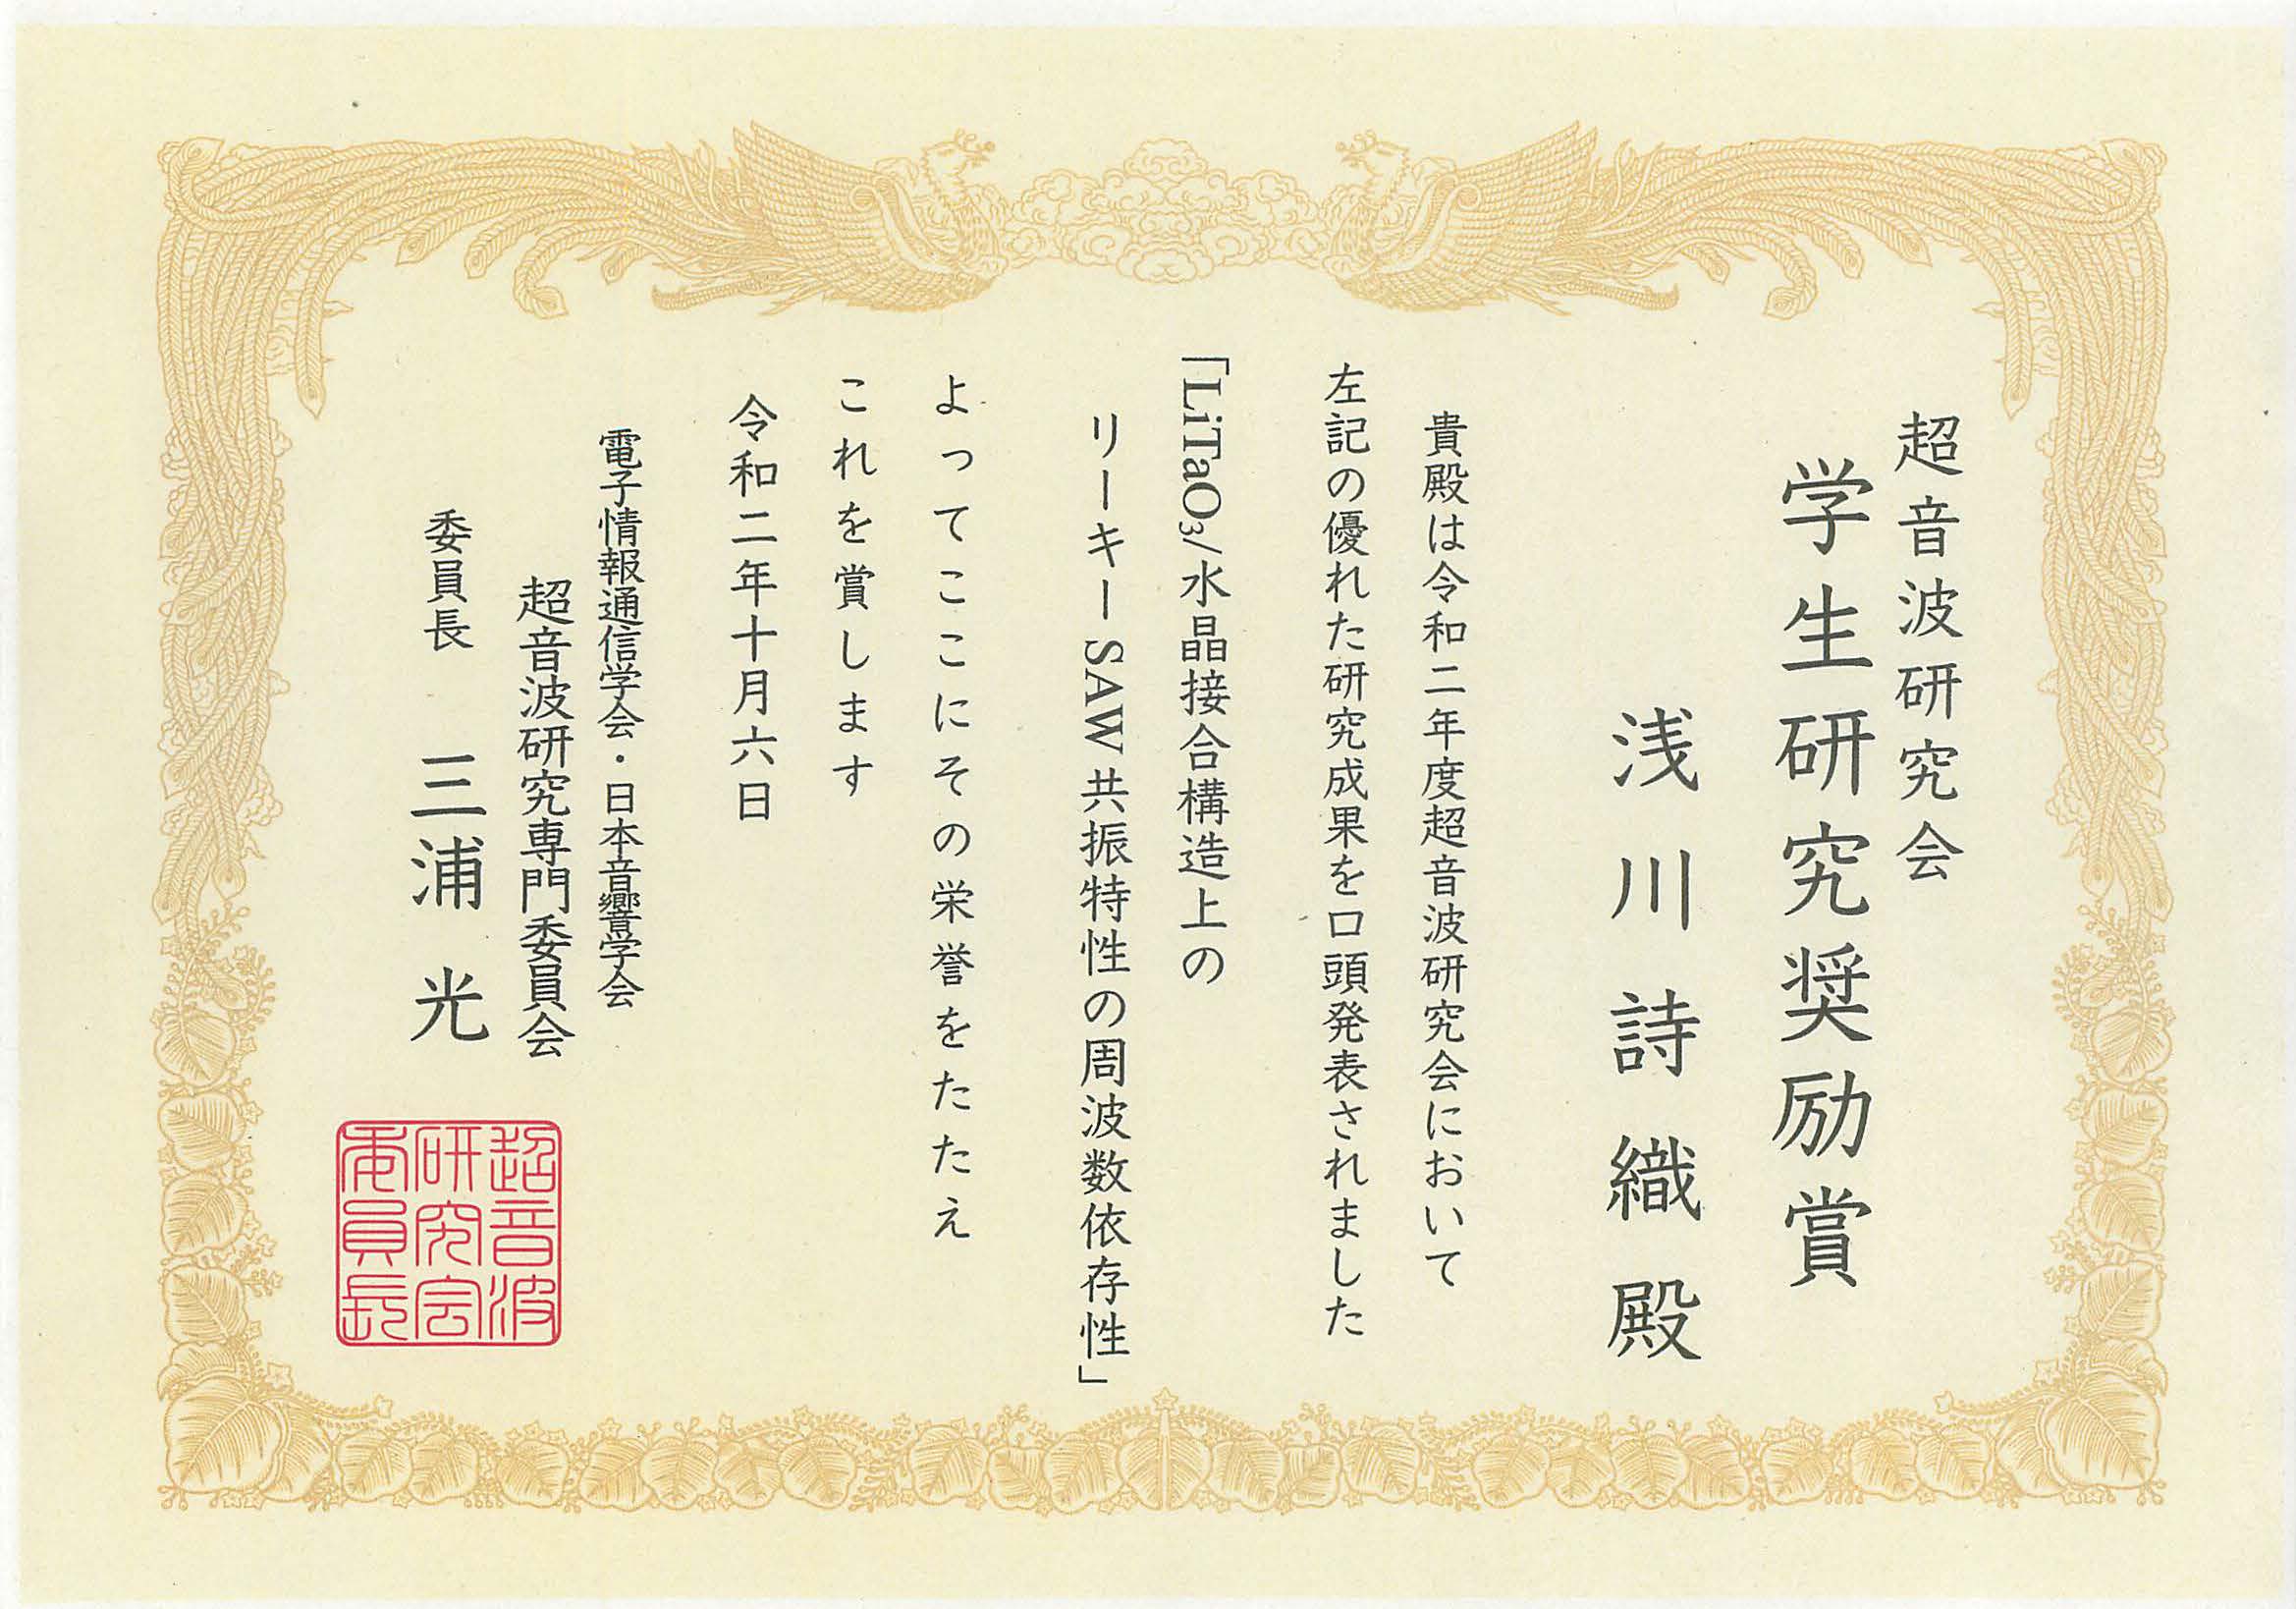 超音波研究会
学生研究奨励賞
浅川詩織殿
貴殿は令和二年度超音波研究会において
左記の優れた研究成果を口頭発表されました
「LiTaO₃/水晶接合構造上の
リーキーSAW共振特性の周波数依存性」
よってここにその栄誉をたたえ
これを賞します
令和二年十月六日
電子情報通信学会・日本音響学会
超音波研究専門委員会
委員長 三浦 光
超音波
研究会
委員長